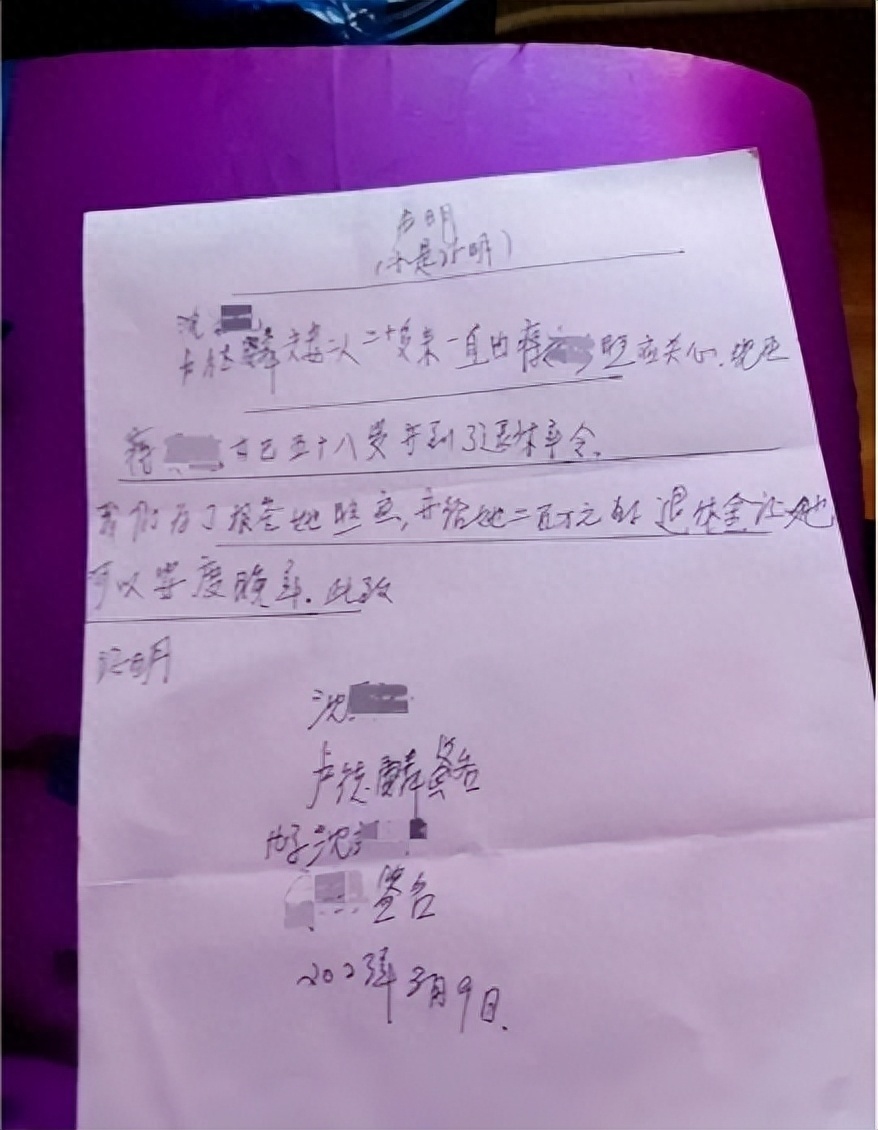 声明
(不是说明)
沈
卢德麟夫妻二人二十多年来一直由蒋 照应关心.现在
蒋 女已五十八岁并到了退休年令.
我们为了报答她照应,并给她二百万元的退休金让她
可以安度晚年.此致
证明
沈
卢德麟签名
沈
签名
2023年3月9日.